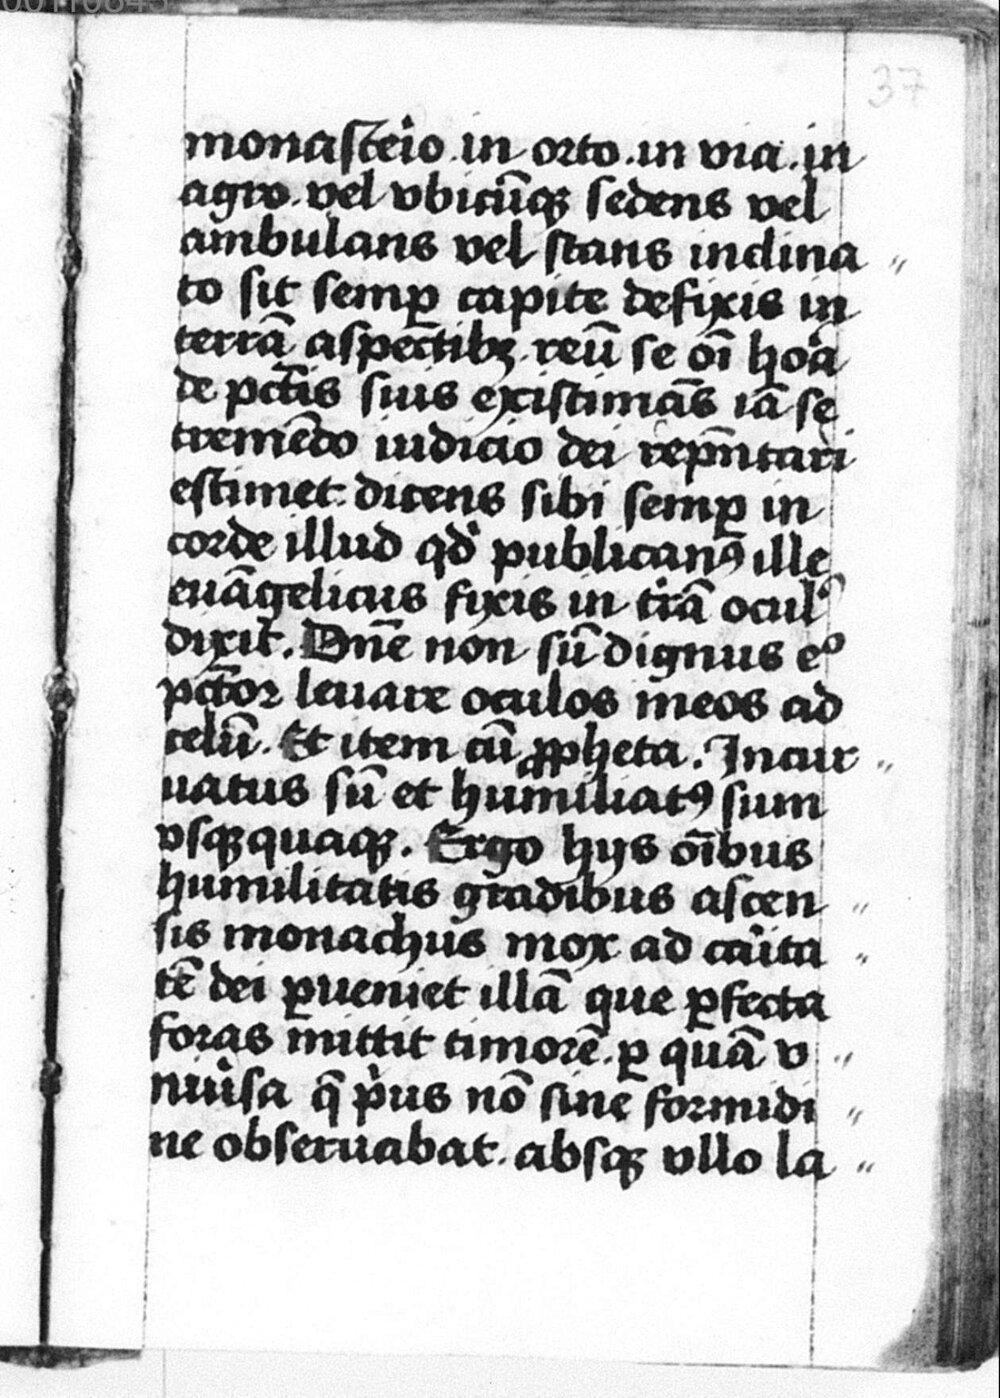 00110843
37
monasteio. in orto. in via. in
agro. vel vbicūqꝫ sedens vel
ambulans vel stans inclina〃
to sit semꝑ capite defixis in
terrā aspectibꝫ. reū se oī hoa
de pctīs suis existimās iā se
tremēdo iudicio dei repn̄tari
estimet. dicens sibi semꝑ in
corde illud qd publicanꝰ ille
euāgelicus fixis in trā ocul
dixit. Dn̄e non sū dignus eº
pctōr leuare oculos meos ad
celū. Et item cū ꝓpheta. Incur〃
uatus sū et humiliatꝰ sum
vsqꝫquaqꝫ. Ergo hijs oībus
humilitatis gradibus ascen〃
sis monachus mox ad caita〃
tē dei ꝑueniet illā que ꝑfecta
foras mittit timorē. ꝑ quā v〃
niūsa q̄ pus nō sine formidi〃
ne obseruabat. absqꝫ vllo la〃